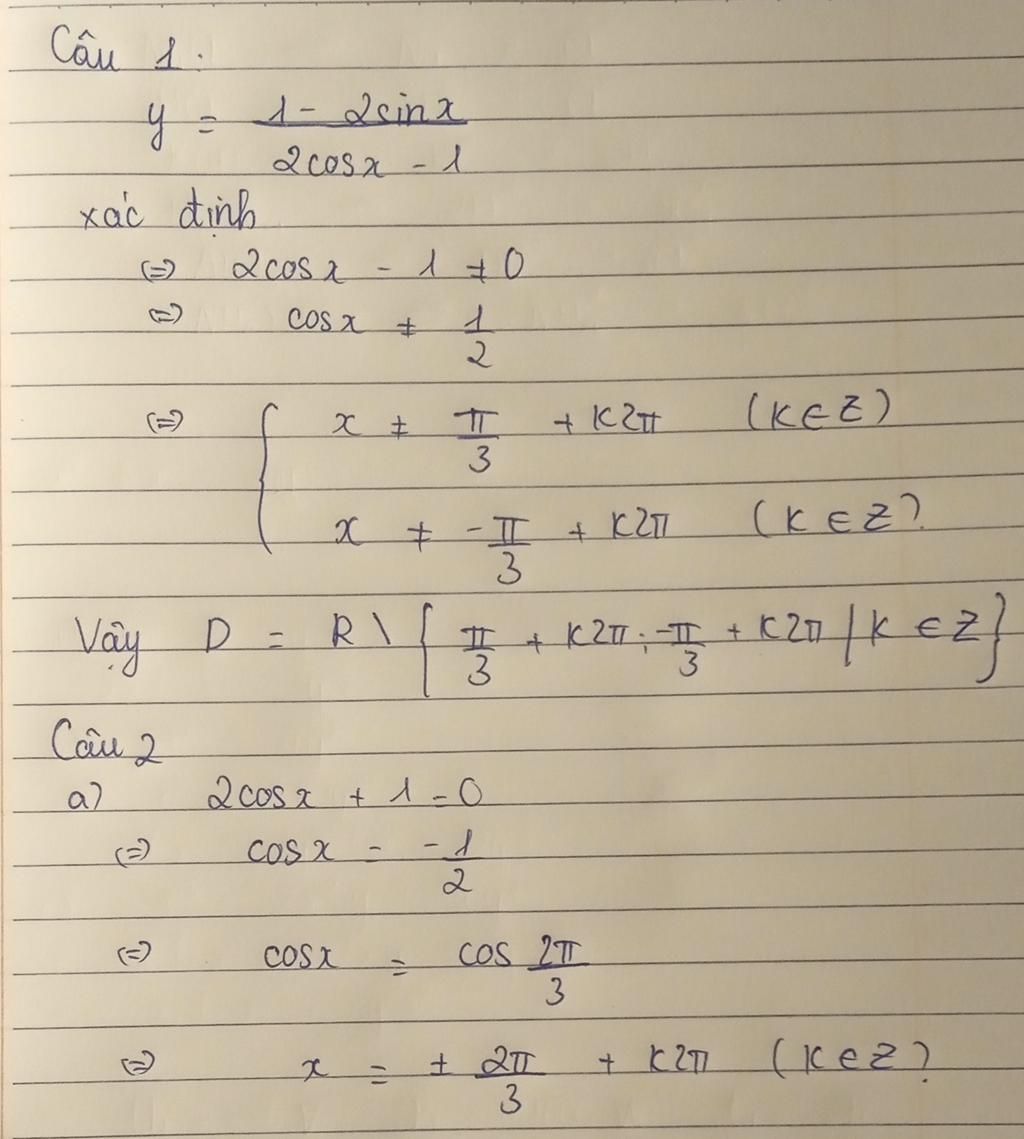 Câu 1.
y = \frac{1 - 2sinx}{2cosx - 1}
xác định
(=) 2cosx - 1 ≠ 0
(=) cosx ≠ \frac{1}{2}
(=) { x ≠ \frac{π}{3} + K2π (K∈Z)
x ≠ -\frac{π}{3} + K2π (K∈Z)
Vậy D = R \ { \frac{π}{3} + K2π ; -\frac{π}{3} + K2π / K ∈ Z }
Câu 2
a) 2cosx + 1 = 0
(=) cosx = -\frac{1}{2}
(=) cosx = cos \frac{2π}{3}
(=) x = ± \frac{2π}{3} + K2π (K∈Z)